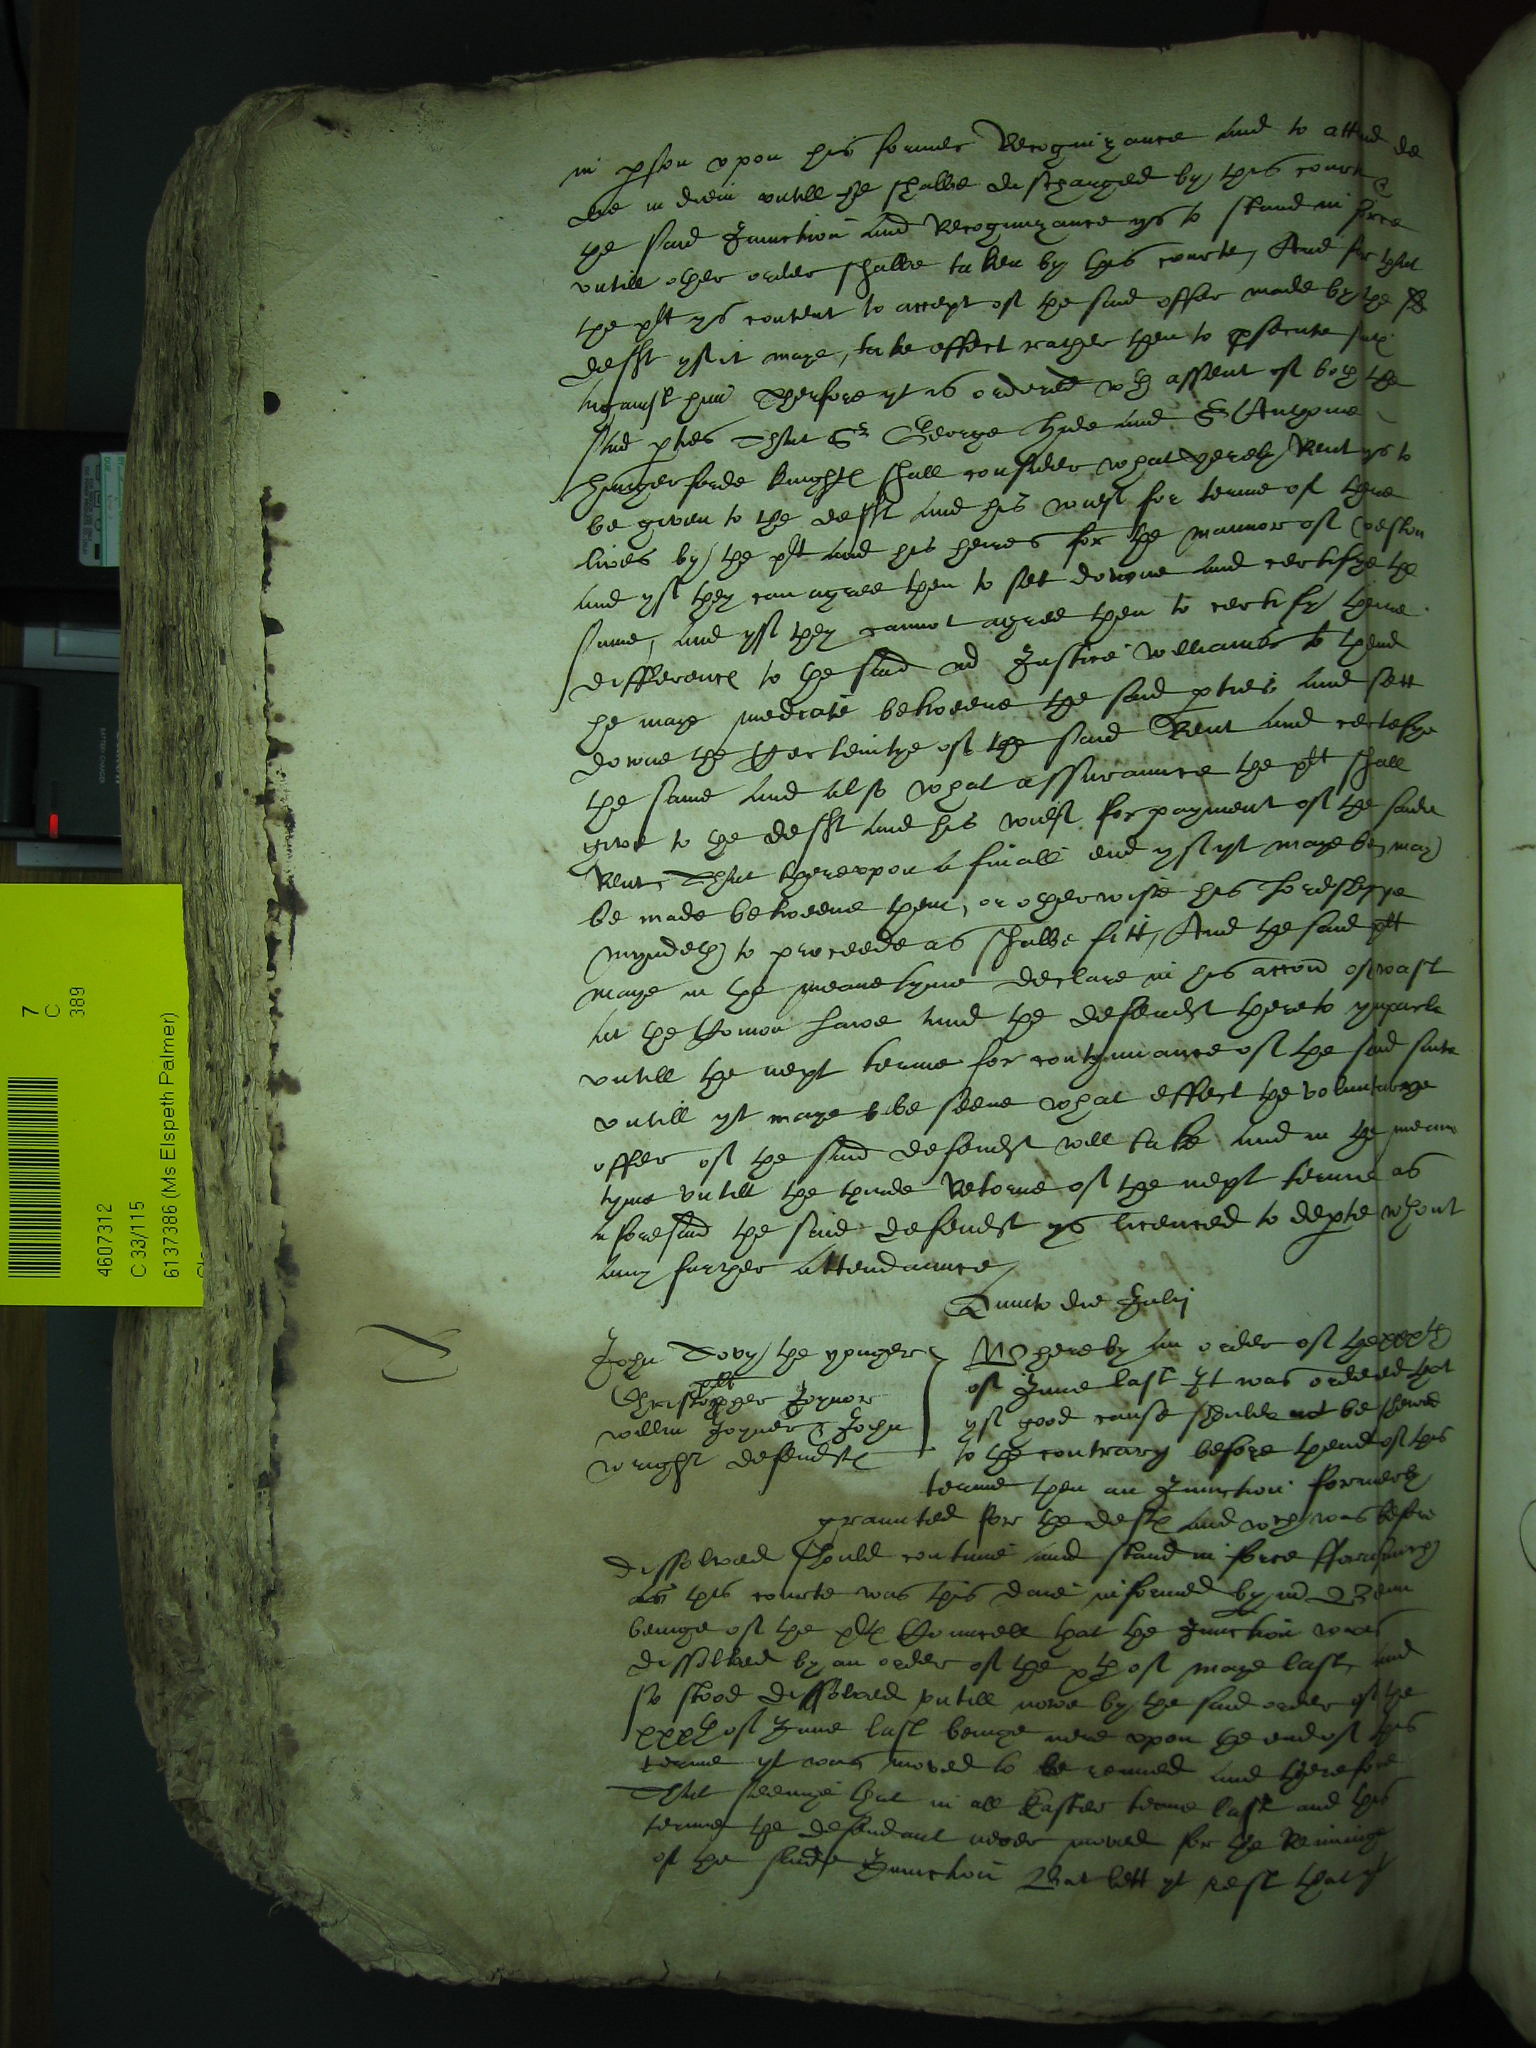 in pson vpon his former Recognizance And to attend de
die in diem vntill he shalbe discharged by this court &
the said Iniunction And Recognizance ys to stand in force
vntill other order shalbe taken by this courte, And for that
the plt ys content to accept of the said offer made by the
defft yf it maye, take effect rather then to psecute
against him Therfore yt is ordered wth assent of both the
said pties That Sr George Hide And Sr Anthonie
Hungerforde knights shall consider what yerely Rent ys to
be given to the defft And his wief for terme of there
lives by the plt And his heires for the mannor of weston
And yf they can agree then to set downe And certifye the
same, And yf they cannot agree then to certify theire
difference to the said mr Justice Williams to thend
he maye mediate betweene the said pties And sett
downe the certeintye of the said Rent And certefye
the same And Also what assuraunce the plt shall
give to the defft And his wief for payment of the saide
Rent, That therevpon A finall end yf yt maye be, may
be made betweene them, or otherwise his Lordshippe
myndeth to proceede as shalbe fitt, And the said plt
maye in the meane tyme declare in his accon of wast
At the Comon Lawe And the defendt thereto
vntill the next terme for contynuance of the said suite
vntill yt maye be seene what effect the voluntarye
offer of the said defendt will take And in the meane
tyme vntill the thirde Retorne of the next terme as
Aforesaid the said defendt ys licenced to depte wthout
Any further Attendaunce,
Quinto die Julij
John Tovy the yonger
plt
Christopher Joynor
Willm Joyner & John
Wright defendts
Whereby An order of the xxxth
of June last It was ordered that
yf good cause should not be shewed
to the contrary before thend of this
terme then an Iniunction formerly
graunted for the defts And wch was before
dissolved should continue And stand in force fforasmuch
as this courte was this daie informed by mr
beinge of the plts Councell that the Iniunction was
dissolved by an order of the xth of maye last, and
so stood dissolved vntill nowe by the said order of the
xxxth of June last beinge nere vpon the end of this
terme yt was moved to be revived And therefore
That seeinge that in all Easter terme last and this
terme the defendant never moved for the Reviuinge
of the saide Iniunction But lett yt rest that yt
4607312
C 33/115
6137386 (Ms Elspeth Palmer)
7
C
389